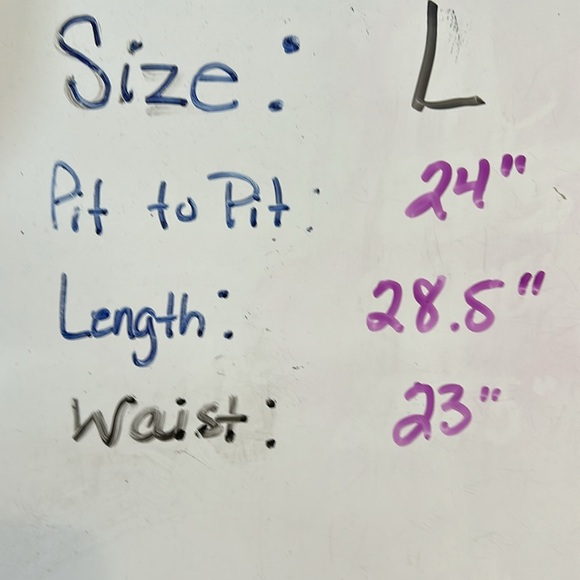 Size: L
Pit to Pit: 24"
Length: 28.5"
Waist: 23"